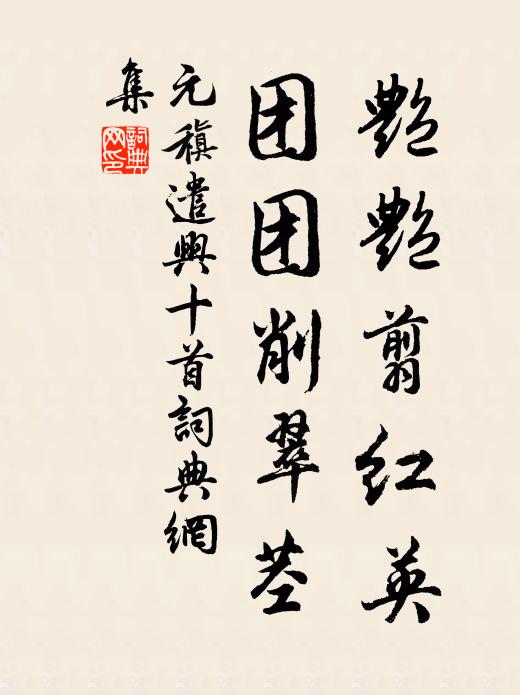 艷艷翦红英
团团削翠茎
元稹遣興十首詞典網
集
詞典網印